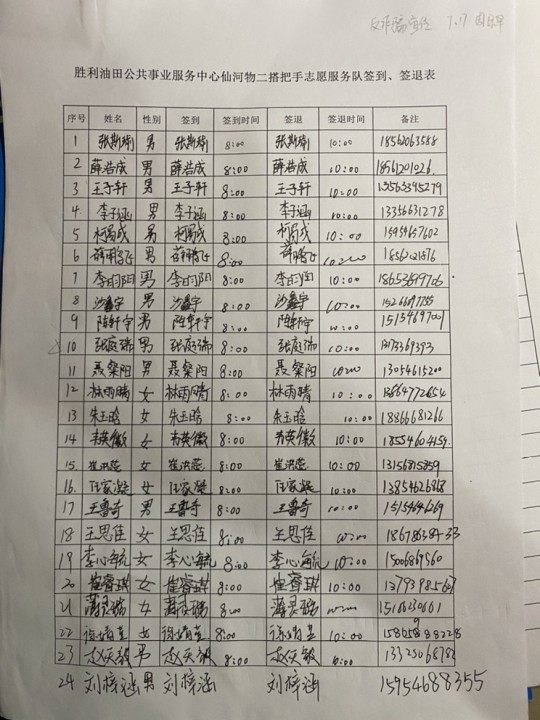 反诈骗宣传 7.17
胜利油田公共事业服务中心仙河物二搭把手志愿服务队签到、签退表
序号 姓名 性别 签到 签到时间 签退 签退时间 备注
1 张斯瑜 男 张斯瑜 8:00 张斯瑜 10:00 18562063588
2 薛浩成 男 薛浩成 8:00 薛浩成 10:00 18561201026
3 王子轩 男 王子轩 8:00 王子轩 10:00 13565345279
4 李子涵 男 李子涵 8:00 李子涵 10:00 13356631278
5 男 8:00 10:00 15954657602
6 薛鹏飞 男 薛鹏飞 8:00 薛鹏飞 10:00
7 李昀阳 男 李昀阳 8:00 李昀阳 10:00
8 沙鑫宇 男 沙鑫宇 8:00 沙鑫宇 10:00
9 陈轩宇 男 陈轩宇 8:00 陈轩宇 10:00
10 张庭瑞 男 张庭瑞 8:00 张庭瑞 10:00
11 聂粲阳 男 聂粲阳 8:00 聂粲阳 10:00 13054615200
12 林雨晴 女 林雨晴 8:00 林雨晴 10:00
13 朱玉晗 女 朱玉晗 8:00 朱玉晗 10:00 18866681266
14 韦英傲 女 韦英傲 8:00 韦英傲 10:00 18554604159
15. 崔洪蕊 女 崔洪蕊 8:00 崔洪蕊 10:00
16. 汪家凝 女 汪家凝 8:00 汪家凝 10:00 13854626868
17 王鲁奇 男 王鲁奇 8:00 王鲁奇 10:00
18 王思佳 女 王思佳 8:00 王思佳 10:00
19 李心毓 女 李心毓 8:00 李心毓 10:00
20 崔睿琪 女 崔睿琪 8:00 崔睿琪 10:00
21 女 8:00
22 徐靖芸 女 徐靖芸 8:00 徐靖芸 10:00
23 赵天毅 男 赵天毅 8:00 赵天毅 10:00
24 刘梓涵 男 刘梓涵 刘梓涵 15954688355